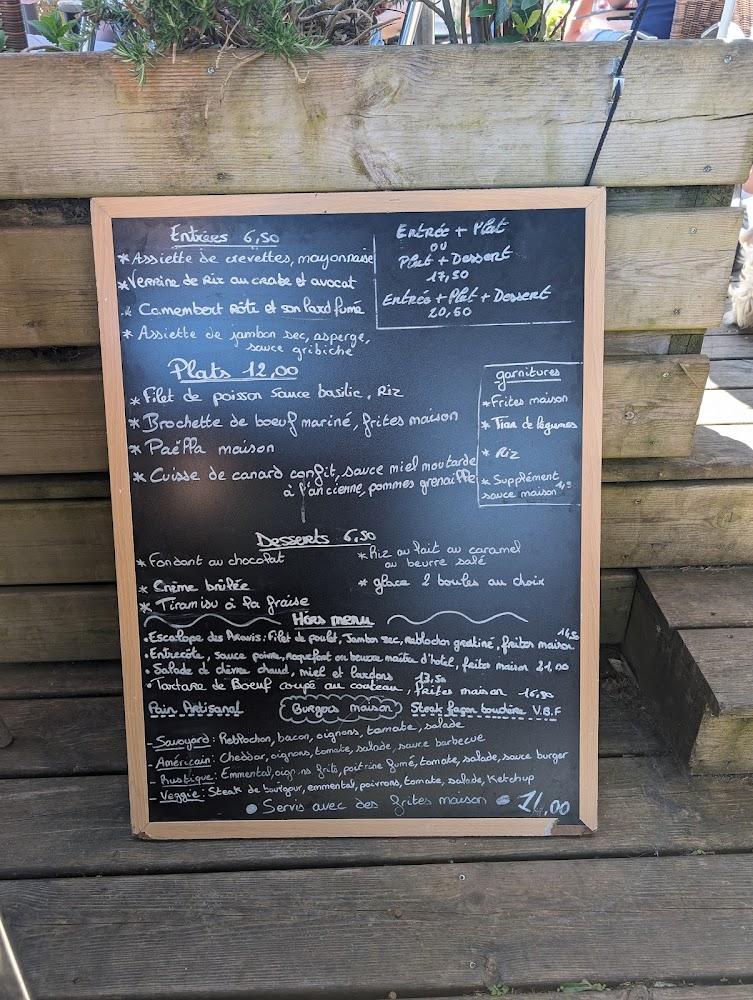 Entrées 6,50
* Assiette de crevettes, mayonnaise
* Verrine de Riz au crabe et avocat
* Camembert Rôti et son lard fumé
* Assiette de jambon sec, asperge,
sauce gribiche
Entrée + Plat
ou
Plat + Dessert
17,50
Entrée + Plat + Dessert
20,50
Plats 12,00
* Filet de poisson sauce basilic, Riz
* Brochette de boeuf mariné, frites maison
* Paëlla maison
* Cuisse de canard confit, sauce miel moutarde
à l'ancienne, pommes grenaille
garnitures
* Frites maison
* Tian de légumes
* Riz
* Supplément
sauce maison
Desserts 6,50
* Fondant au chocolat
* Crème brûlée
* Tiramisu à la fraise
* Riz au lait au caramel
au beurre salé
* glace 2 boules au choix
Hors menu
• Escalope des Aravis: Filet de poulet, Jambon sec, Reblochon gratiné, frites maison
• Entrecôte, sauce poivre, roquefort ou beurre maître d'hôtel, frites maison 21,00
• Salade de chèvre chaud, miel et lardons 13,50
• Tartare de Boeuf coupé au couteau, frites maison
Pain Artisanal Burgers maison Steak façon bouchère V.B.F
- Savoyard: Reblochon, bacon, oignons, tomate, salade
- Américain: Cheddar, oignons, tomate, salade, sauce barbecue
- Rustique: Emmental, oignons frits, poitrine fumé, tomate, salade, sauce burger
- Veggie: Steak de boulgour, emmental, poivrons, tomate, salade, Ketchup
• Servis avec des frites maison • 14,00